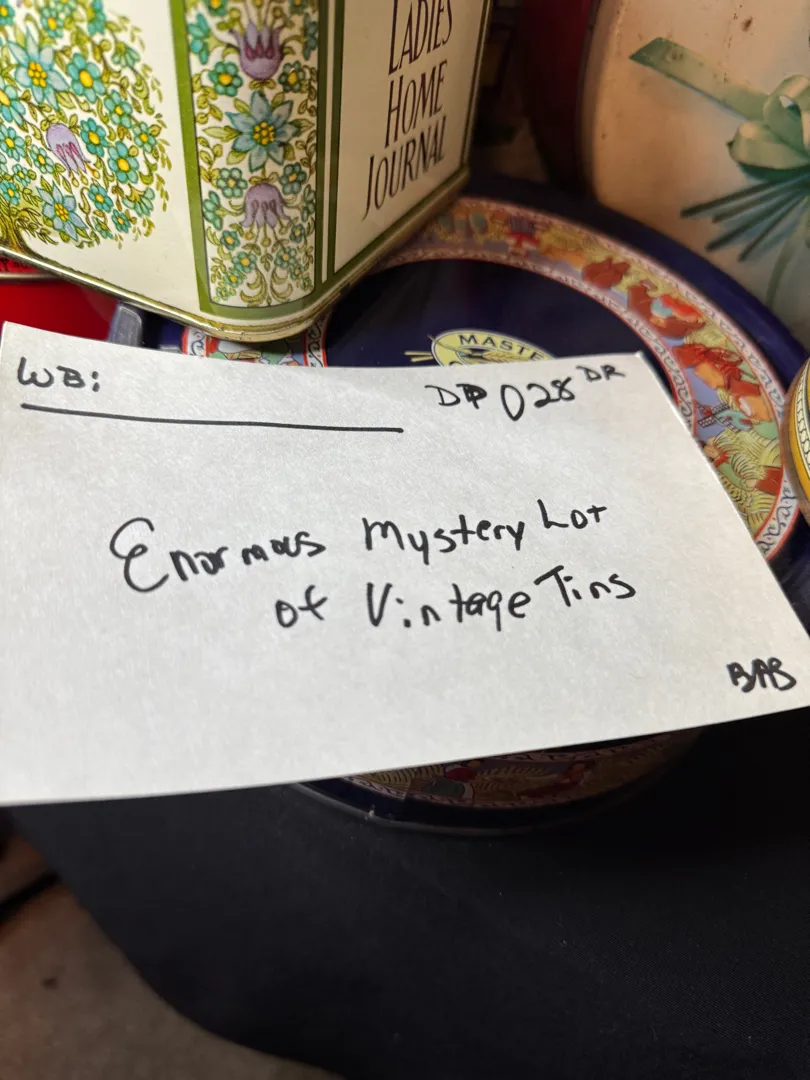 LADIES
HOME
JOURNAL
MASTE
WB:
DP 028 DR
Enormous Mystery Lot
of Vintage Tins
BAB